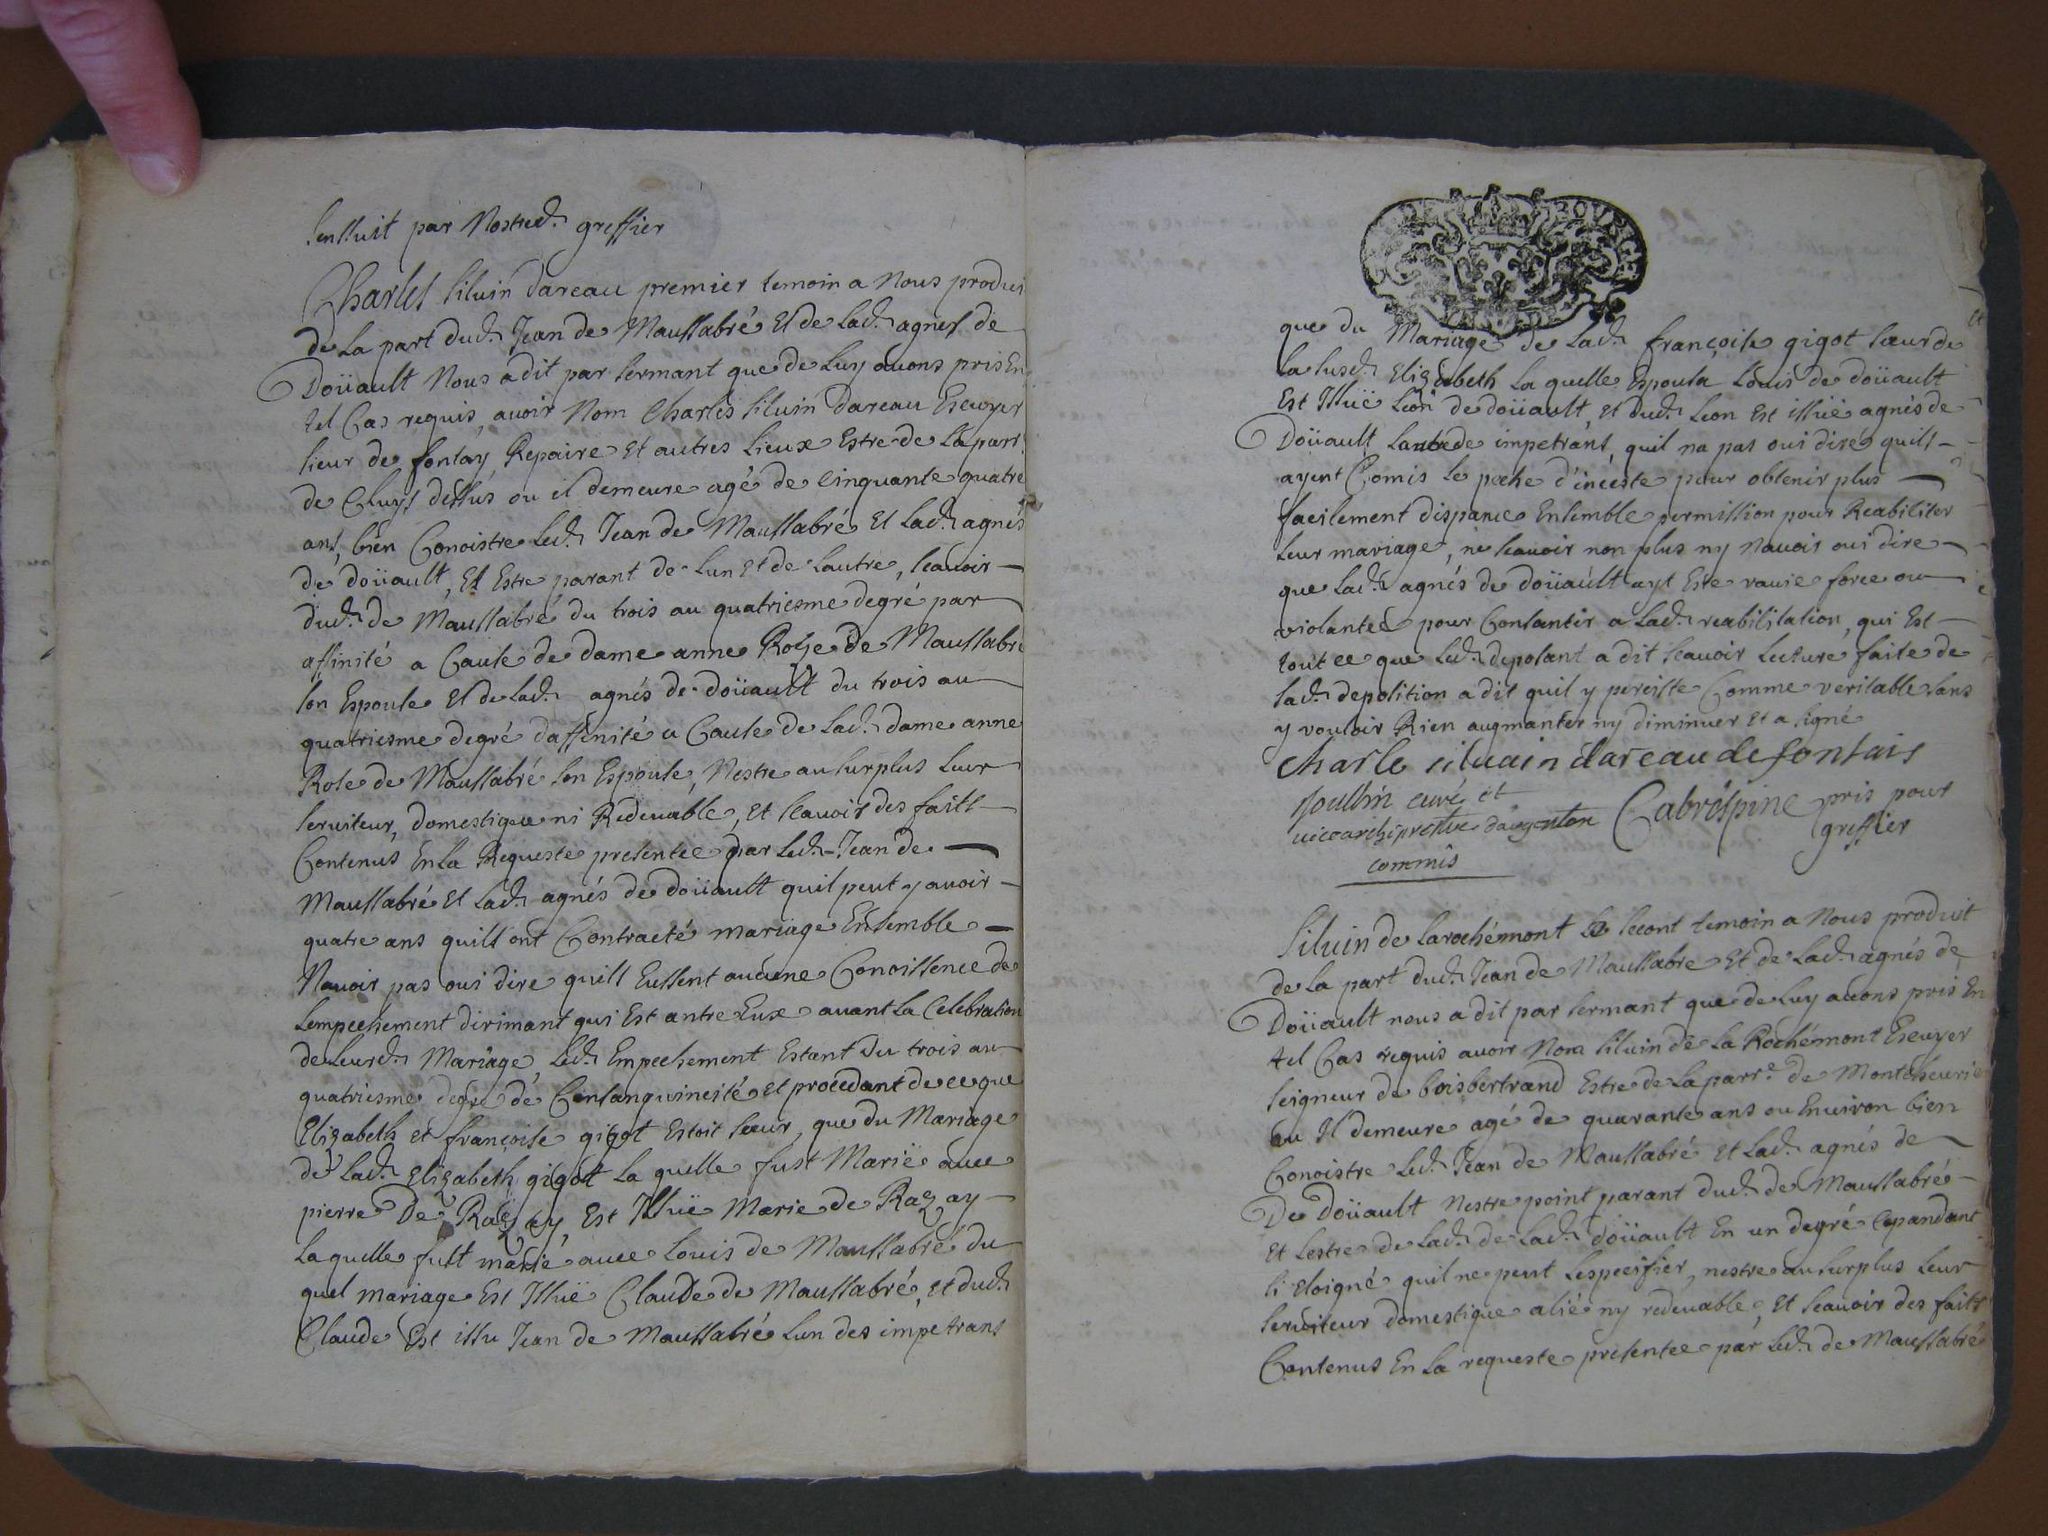 sensuit par Nostred. greffier
Charles siluin dareau premier temoin a Nous produi
de la part dud. Jean de Maussabré Et de lad. agnes de
Doüault Nous a dit par sermant que de Luy avons pris En
tel Cas requis, avoir Nom Charles siluin dareau Escuyer
sieur de fontay, Repaire et autres Lieux Estre de la parr
de Cluys dessus ou il demeure agé de Cinquante quatre
ans, bien Conoistre led. Jean de Maussabré Et lad. agnés
de doüault, Et Estre parant de Lun et de Lautre, scavoir
dud. de Maussabré du trois au quatriesme degré par
affinité a Cause de dame anne Rose de Maussabré
son Espouse Et de lad. agnés de doüault du trois au
quatriesme degré daffinité a Cause de lad. dame anne
Rose de Maussabré son Espouse, Nestre au surplus Leur
serviteur, domestique ni Redevable, Et scavoir des faits
Contenus En la Requeste presentee par led. Jean de
Maussabré Et lad. agnés de doüault quil peut y avoir
quatre ans quils ont Contracté mariage Ensemble
Navoir pas oui dire quils Eussent aucune Conoissence de
Lempechement dirimant qui Est antre Eux avant La Celebration
de Leurd. Mariage, led. Empechement Estant du trois au
quatriesme degré de Consanguineité et procedant de ce que
Elizabeth et françoise gigot Estoit sœur, que du Mariage
de lad. Elizabeth gigot la quelle fust Marië avec
pierre De Razay, Est Issuë Marie de Razay
la quelle fust marië avec Louis de Maussabré du
quel mariage Est Issuë Claude de Maussabré, et dud.
Claude Est issu Jean de Maussabré Lun des impetrans
DE BOURGES
que du Mariage de lad. françoise gigot sœur de
la susd. Elizabeth la quelle Espousa Louis de doüault
Est Issuë Léon de doüault, et dud. Leon Est issuë agnés de
Doüault Lautre de impetrans, quil na pas oui dire quils
ayent Comis le peché d'inceste pour obtenir plus
facilement dispance Ensemble permission pour Reabiliter
Leur mariage, ne scavoir non plus ny Navoir oui dire
que lad. agnés de doüault ayt Esté ravie force ou
violanteé pour Consantir a lad. reabilitation, qui Est
tout ce que led. deposant a dit scavoir Lecture faite de
lad. deposition a dit quil y persiste Comme veritable sans
y vouloir Rien augmanter ny diminuer et a signé
charle siluain dareau de fontais
Joullin curé et
vicearchiprestre dargenton
commis
Cabrespine pris pour
greffier
Siluin de Larochémont le secont temoin a Nous produit
de la part dud. Jean de Maussabre Et de lad. agnés de
Doüault nous a dit par sermant que de Luy avons pris En
tel Cas requis avoir Nom siluin de la Rochémont Escuyer
seigneur de boisbertrand Estre de la parre. de Montcheurié
ou Il demeure agé de quarante ans ou Environ bien
Conoistre led. Jean de Maussabré Et lad. agnés de
De doüault Nestre point parant dud. de Maussabré
Et Lestre de lad. de lad. doüault En un degré Cepandant
si Eloigné quil ne peut Lespecifier, nestre au surplus Leur
serviteur domestique alié ny redevable, Et scavoir des faits
Contenus En la requeste presentee par led. de Maussabré